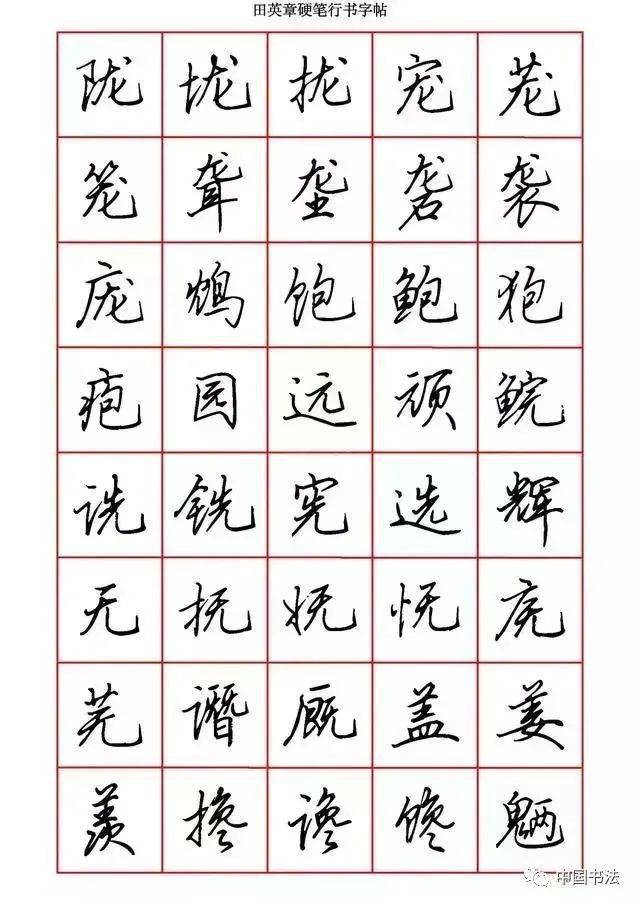 田英章硬笔行书字帖
陇 垅 拢 宠 茏
笼 聋 垄 砻 袭
庞 饱 鲍 狍
疱 园 远 顽 鲩
诜 铣 宪 选 辉
无 抚 妩 怃 庑
芜 谮 厩 盖 姜
羡 搀 谗 馋 魉
中国书法